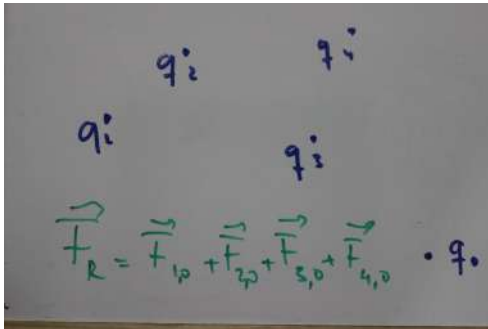 q₂ q₄
q₁ q₃
F⃗_R = F⃗_1,0 + F⃗_2,0 + F⃗_3,0 + F⃗_4,0 · q₀